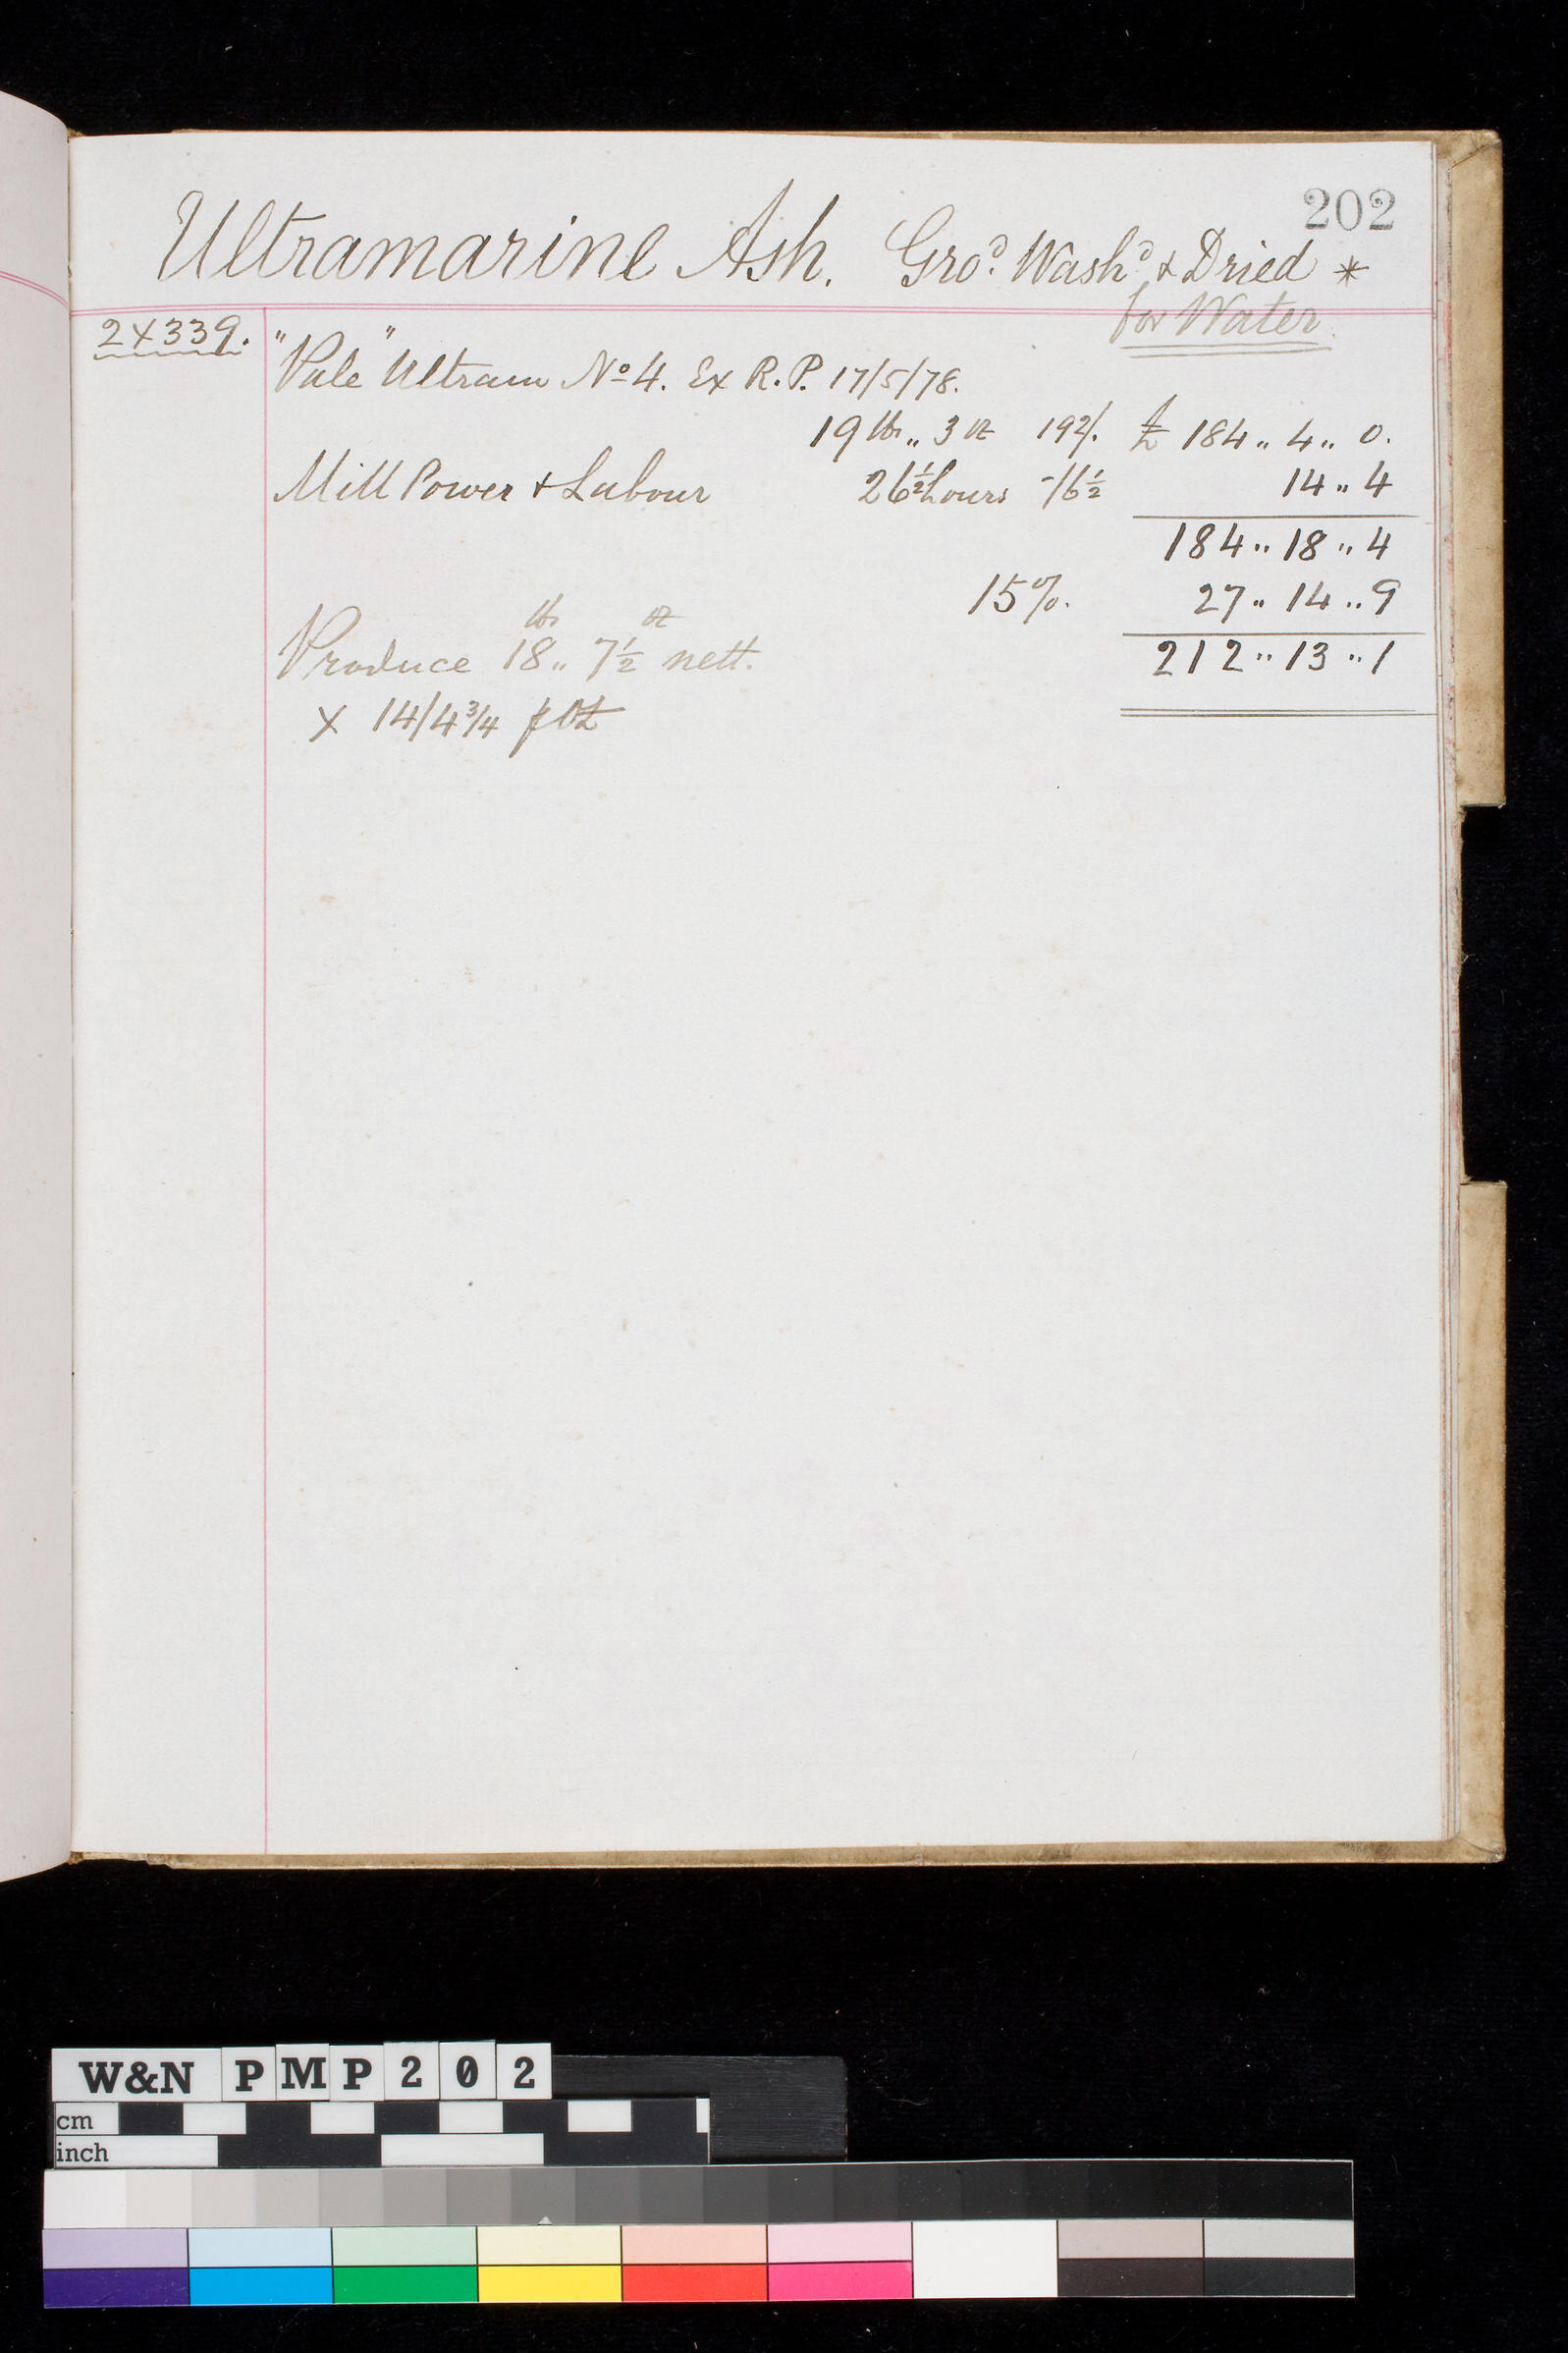 202
Ultramarine Ash. Gro^d. Wash^d & Dried *
for Water.
2X339.
"Pale" Ultram No 4. Ex R.P. 17/5/78.
19 lbs,, 3 oz 192/. £ 184,, 4,, 0.
Mill Power & Labour 26½ hours -/6½ 14,, 4
184,, 18,, 4
15%. 27,, 14,, 9
Produce 18 lbs,, 7½ oz nett. 212,, 13,, 1
X 14/4¾ p oz
W&N PMP202
cm
inch